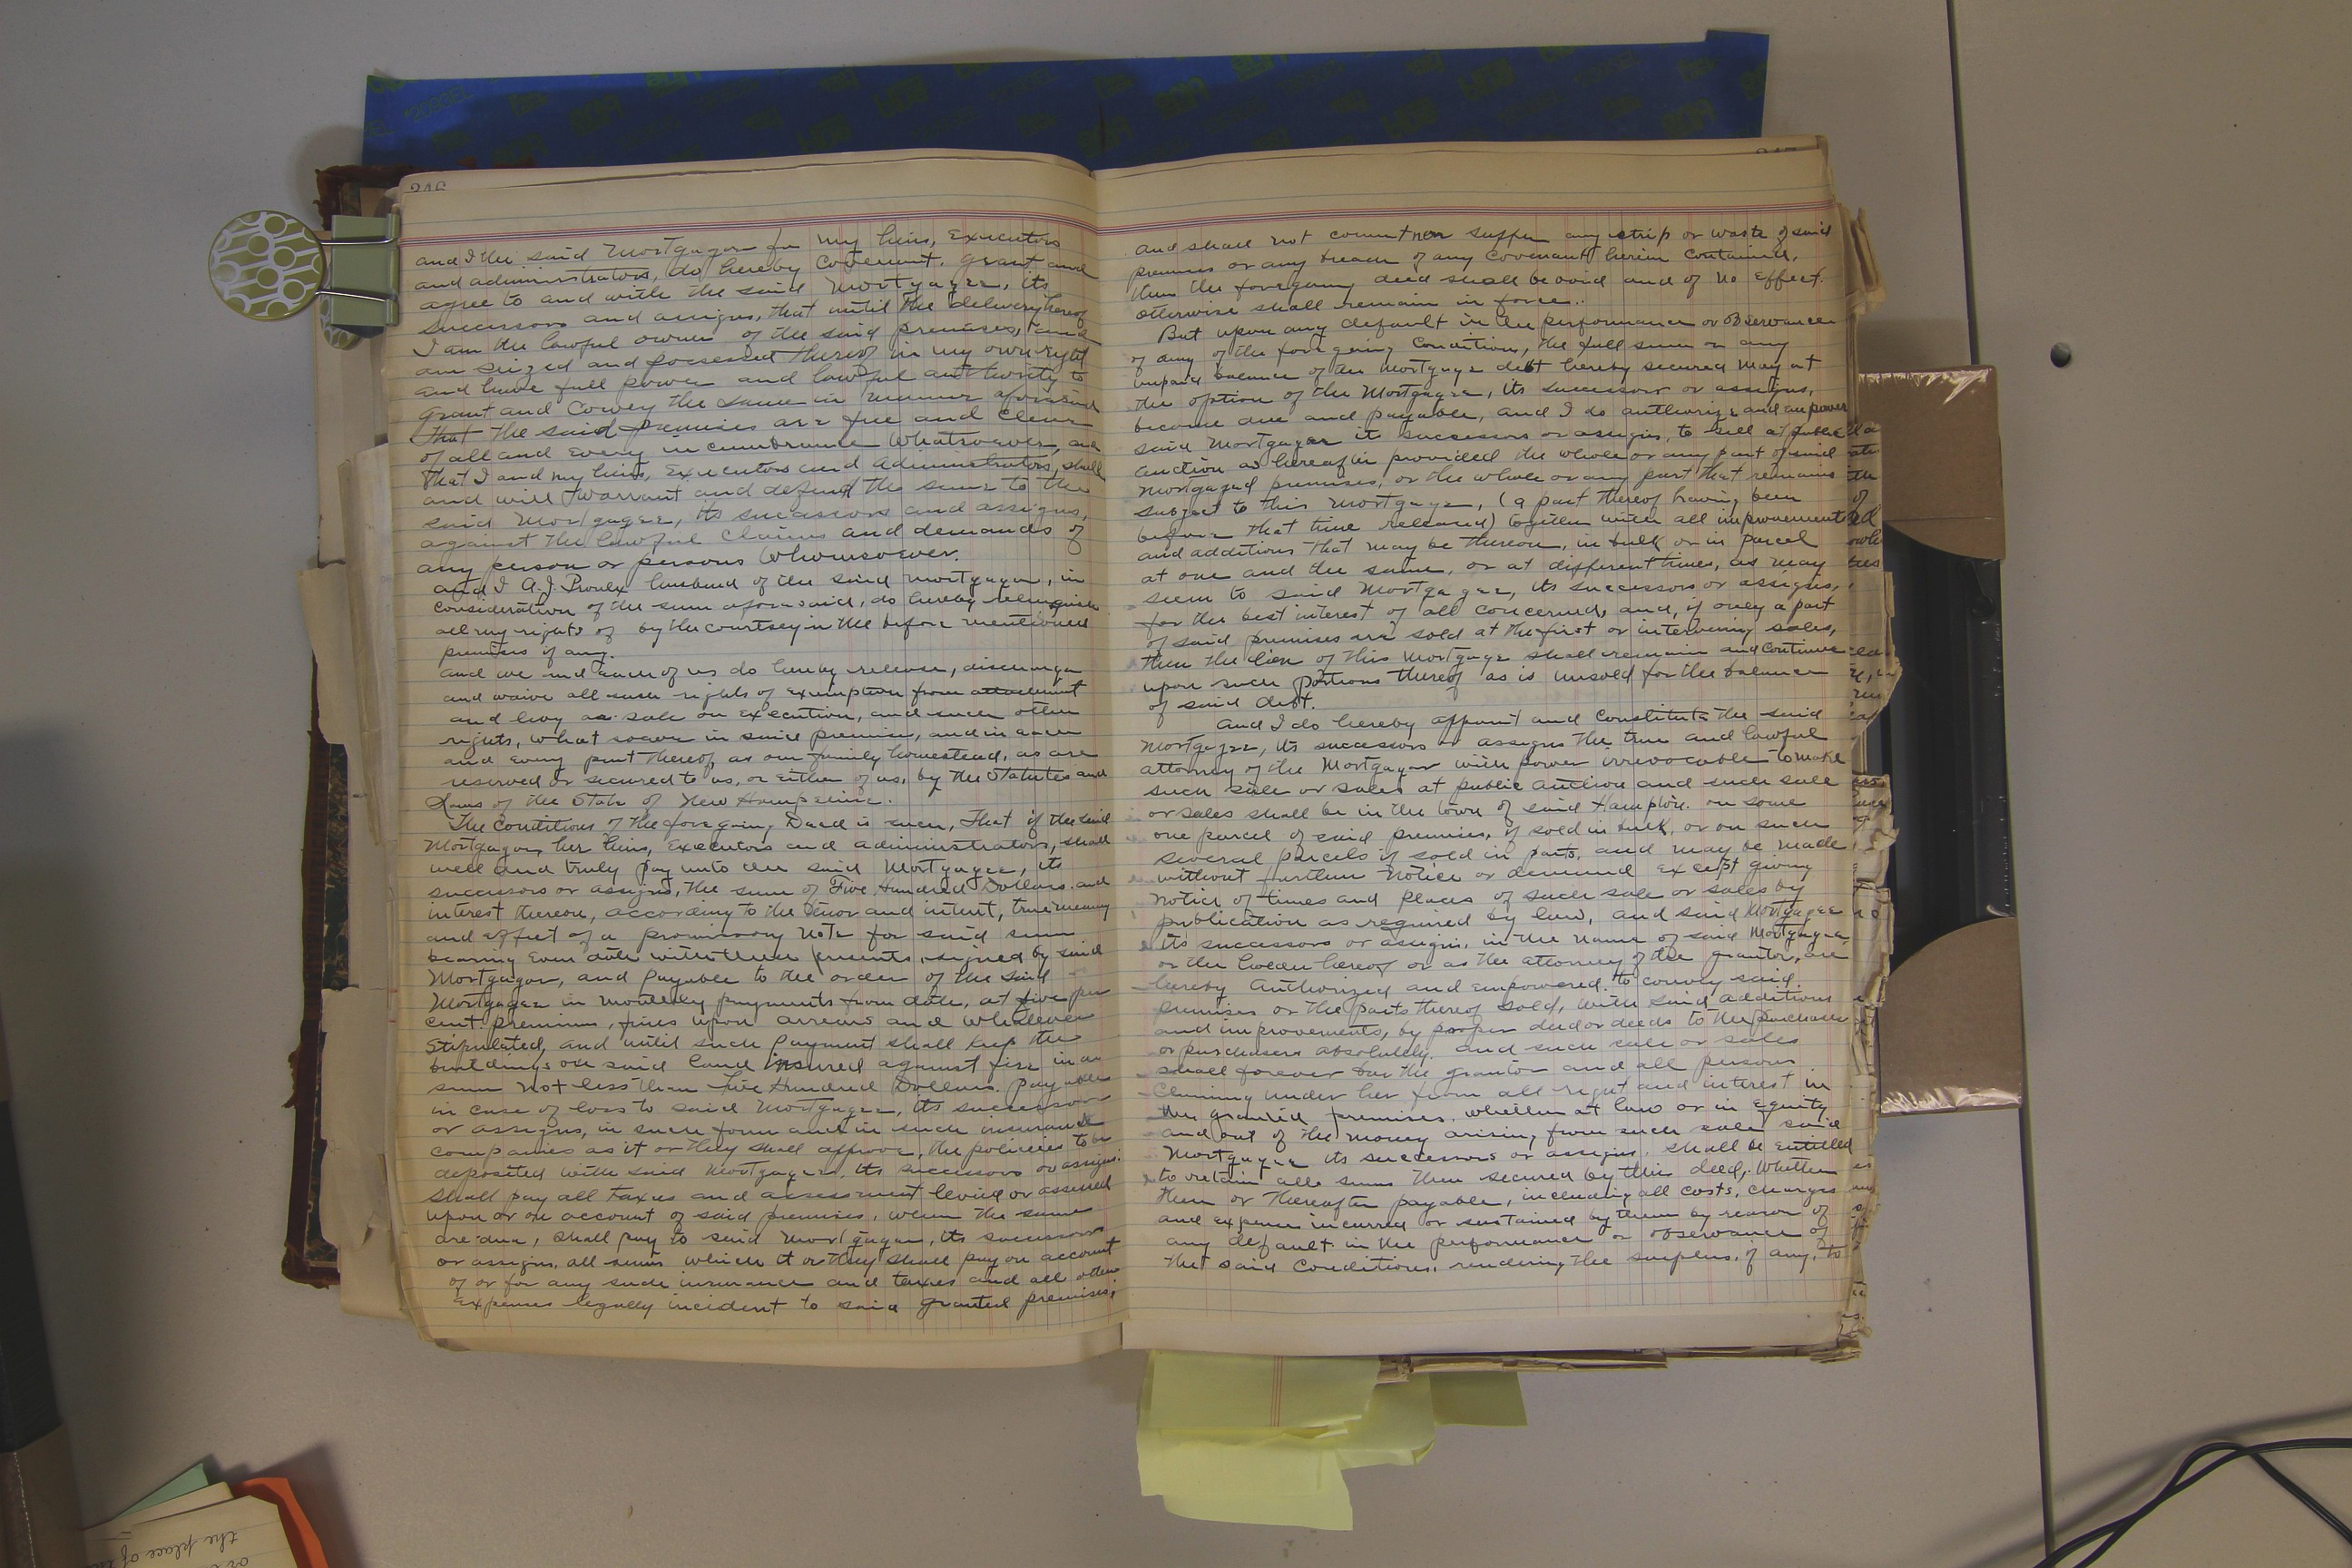 246
and I the said Mortgagor for my heirs, Executors
and administrators, do hereby Covenant, grant and
agree to and with the said Mortgagee, its
successors and assigns, that until the delivery hereof
I am the lawful owner of the said premises, and
am seized and possessed thereof in my own right
and have full power and lawful authority to
grant and Convey the same in manner aforesaid
That the said premises are free and clear
of all and Every incumbrance Whatsoever, and
that I and my heirs, executors and administrators, shall
and will warrant and defend the same to the
said Mortgagee, its successors and assigns,
against the lawful Claims and demands of
any person or persons Whomsoever.
and I A.J. Proulx husband of the said mortgagor, in
consideration of the sum aforesaid, do hereby relinquish
all my rights of by the courtsey in the before mentioned
premises if any.
and we and each of us do hereby release, discharge
and waive all such rights of exemption from attachment
and levy or sale on Execution, and such other
rights, whatsoever in said premises, and in each
and Every part thereof, as our family homestead, as are
reserved or secured to us, or either of us, by the Statutes and
Laws of the State of New Hampshire.
The conditions of the foregoing Deed is such, That if the said
Mortgagor, her heirs, executors and administrators, shall
well and truly pay unto the said Mortgagee, its
successors or assigns, the sum of Five Hundred Dollars and
interest thereon, according to the tenor and intent, true meaning
and effect of a promissory note for said sum
bearing even date with these presents, signed by said
Mortgagor, and payable to the order of the said
Mortgagee in monthly payments from date, at five per
cent. premium, fines upon arrears and whatever
Stipulated, and until such payment shall keep the
buildings on said land insured against fire in a
sum not less than Five Hundred Dollars. payable
in case of loss to said Mortgagee, its successors
or assigns, in such form and in such insurance
companies as it or they shall approve, the policies to be
deposited with said Mortgagee, its successors or assigns.
Shall pay all taxes and assessment levied or assessed
upon or on account of said premises, when the same
are due, shall pay to said Mortgagee, its successors
or assigns, all sums which it or they shall pay on account
of or for any such insurance and taxes and all other
expenses legally incident to said granted premises;
and shall not commit nor suffer any strip or waste of said
premises or any breach of any covenant herein contained,
then the foregoing deed shall be void and of no Effect.
otherwise shall remain in force..
But upon any default in the performance or observance
of any of the foregoing Condition, the full sum or any
unpaid balance of the Mortgage debt hereby secured may at
the option of the Mortgagee, its successor or assigns,
become due and payable, and I do authorize and empower
said Mortgagee its successors or assigns, to sell at public
auction as hereafter provided the whole or any part of said
mortgaged premises, or the whole or any part that remains
subject to this Mortgage, (a part thereof having been
before that time released) together with all improvements
and additions that may be thereon, in bulk or in parcel
at one and the same, or at different times, as may
seem to said Mortgagee, its successors or assigns,
for the best interest of all concerned, and, if only a part
of said premises are sold at the first or intervening sales,
then the lien of this Mortgage shall remain and continue
upon such portions thereof as is unsold for the balance
of said debt.
And I do hereby appoint and constitute the said
Mortgagee, its successors or assigns the true and lawful
attorney of the Mortgagor with power irrevocable to make
such sale or sales at public auction and such sale
or sales shall be in the town of said Hampton. on some
one parcel of said premises, if sold in bulk, or on such
several parcels if sold in parts, and may be made
without further notice or demand except giving
notice of times and places of such sale or sales by
publication as required by law, and said Mortgagee
its successors or assigns, in the name of said Mortgagee,
or the holder hereof or as the attorney of the grantor, are
hereby authorized and empowered to convey said
premises or the parts thereof sold, with said additions
and improvements, by proper deed or deeds to the purchaser
or purchasers absolutely. and such sale or sales
shall forever bar the grantor and all persons
claiming under her from all right and interest in
the granted premises, whether at law or in Equity
and out of the money arising from such sale said
Mortgagee its successors or assigns, shall be entitled
to retain all sums then secured by this deed, Whether
then or thereafter payable, including all costs, charges
and expense incurred or sustained by them by reason of
any default in the performance or observance of
the said Conditions, rendering the surplus, if any, to
the place of